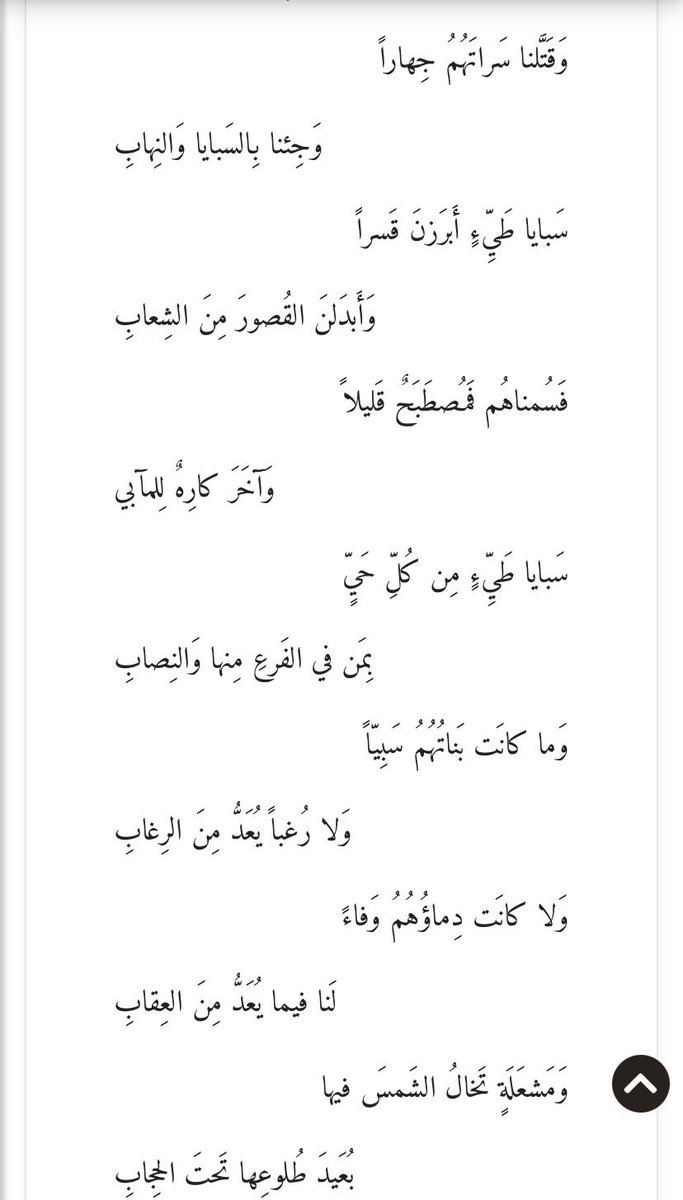 وَقَتَّلنا سَراتَهُمُ جِهاراً
وَجِئنا بِالسَبايا وَالنِهابِ
سَبايا طَيِّءٍ أَبرَزنَ قَسراً
وَأَبدَلنَ القُصورَ مِنَ الشِعابِ
فَسُمناهُم فَمُصطَبَحٌ قَليلاً
وَآخَرَ كارِهٌ لِلمآبي
سَبايا طَيِّءٍ مِن كُلِّ حَيٍّ
بِمَن في الفَرعِ مِنها وَالنِصابِ
وَما كانَت بَناتُهُمُ سَبِيّاً
وَلا رُغباً يُعَدُّ مِنَ الرِغابِ
وَلا كانَت دِماؤُهُمُ وَفاءً
لَنا فيما يُعَدُّ مِنَ العِقابِ
وَمَشعَلَةٍ تَخالُ الشَمسَ فيها
بُعَيدَ طُلوعِها تَحتَ الحِجابِ